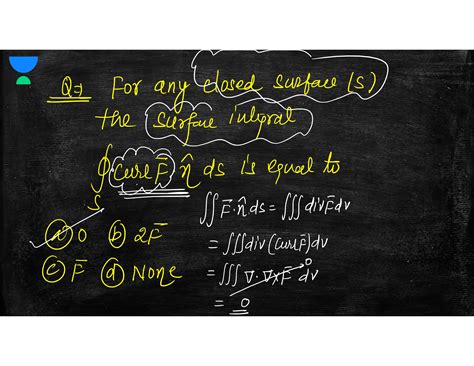 Q⇒ For any closed surface (S)
the surface integral
∮ Curl F̄ n̂ ds is equal to
S
ⓐ 0 ⓑ 2F̄
ⓒ F̄ ⓓ None
∬ F̄·n̂ ds = ∭ div F̄ dv
= ∭ div (Curl F̄) dv
= ∭ ∇·∇×F̄ dv 0
= 0